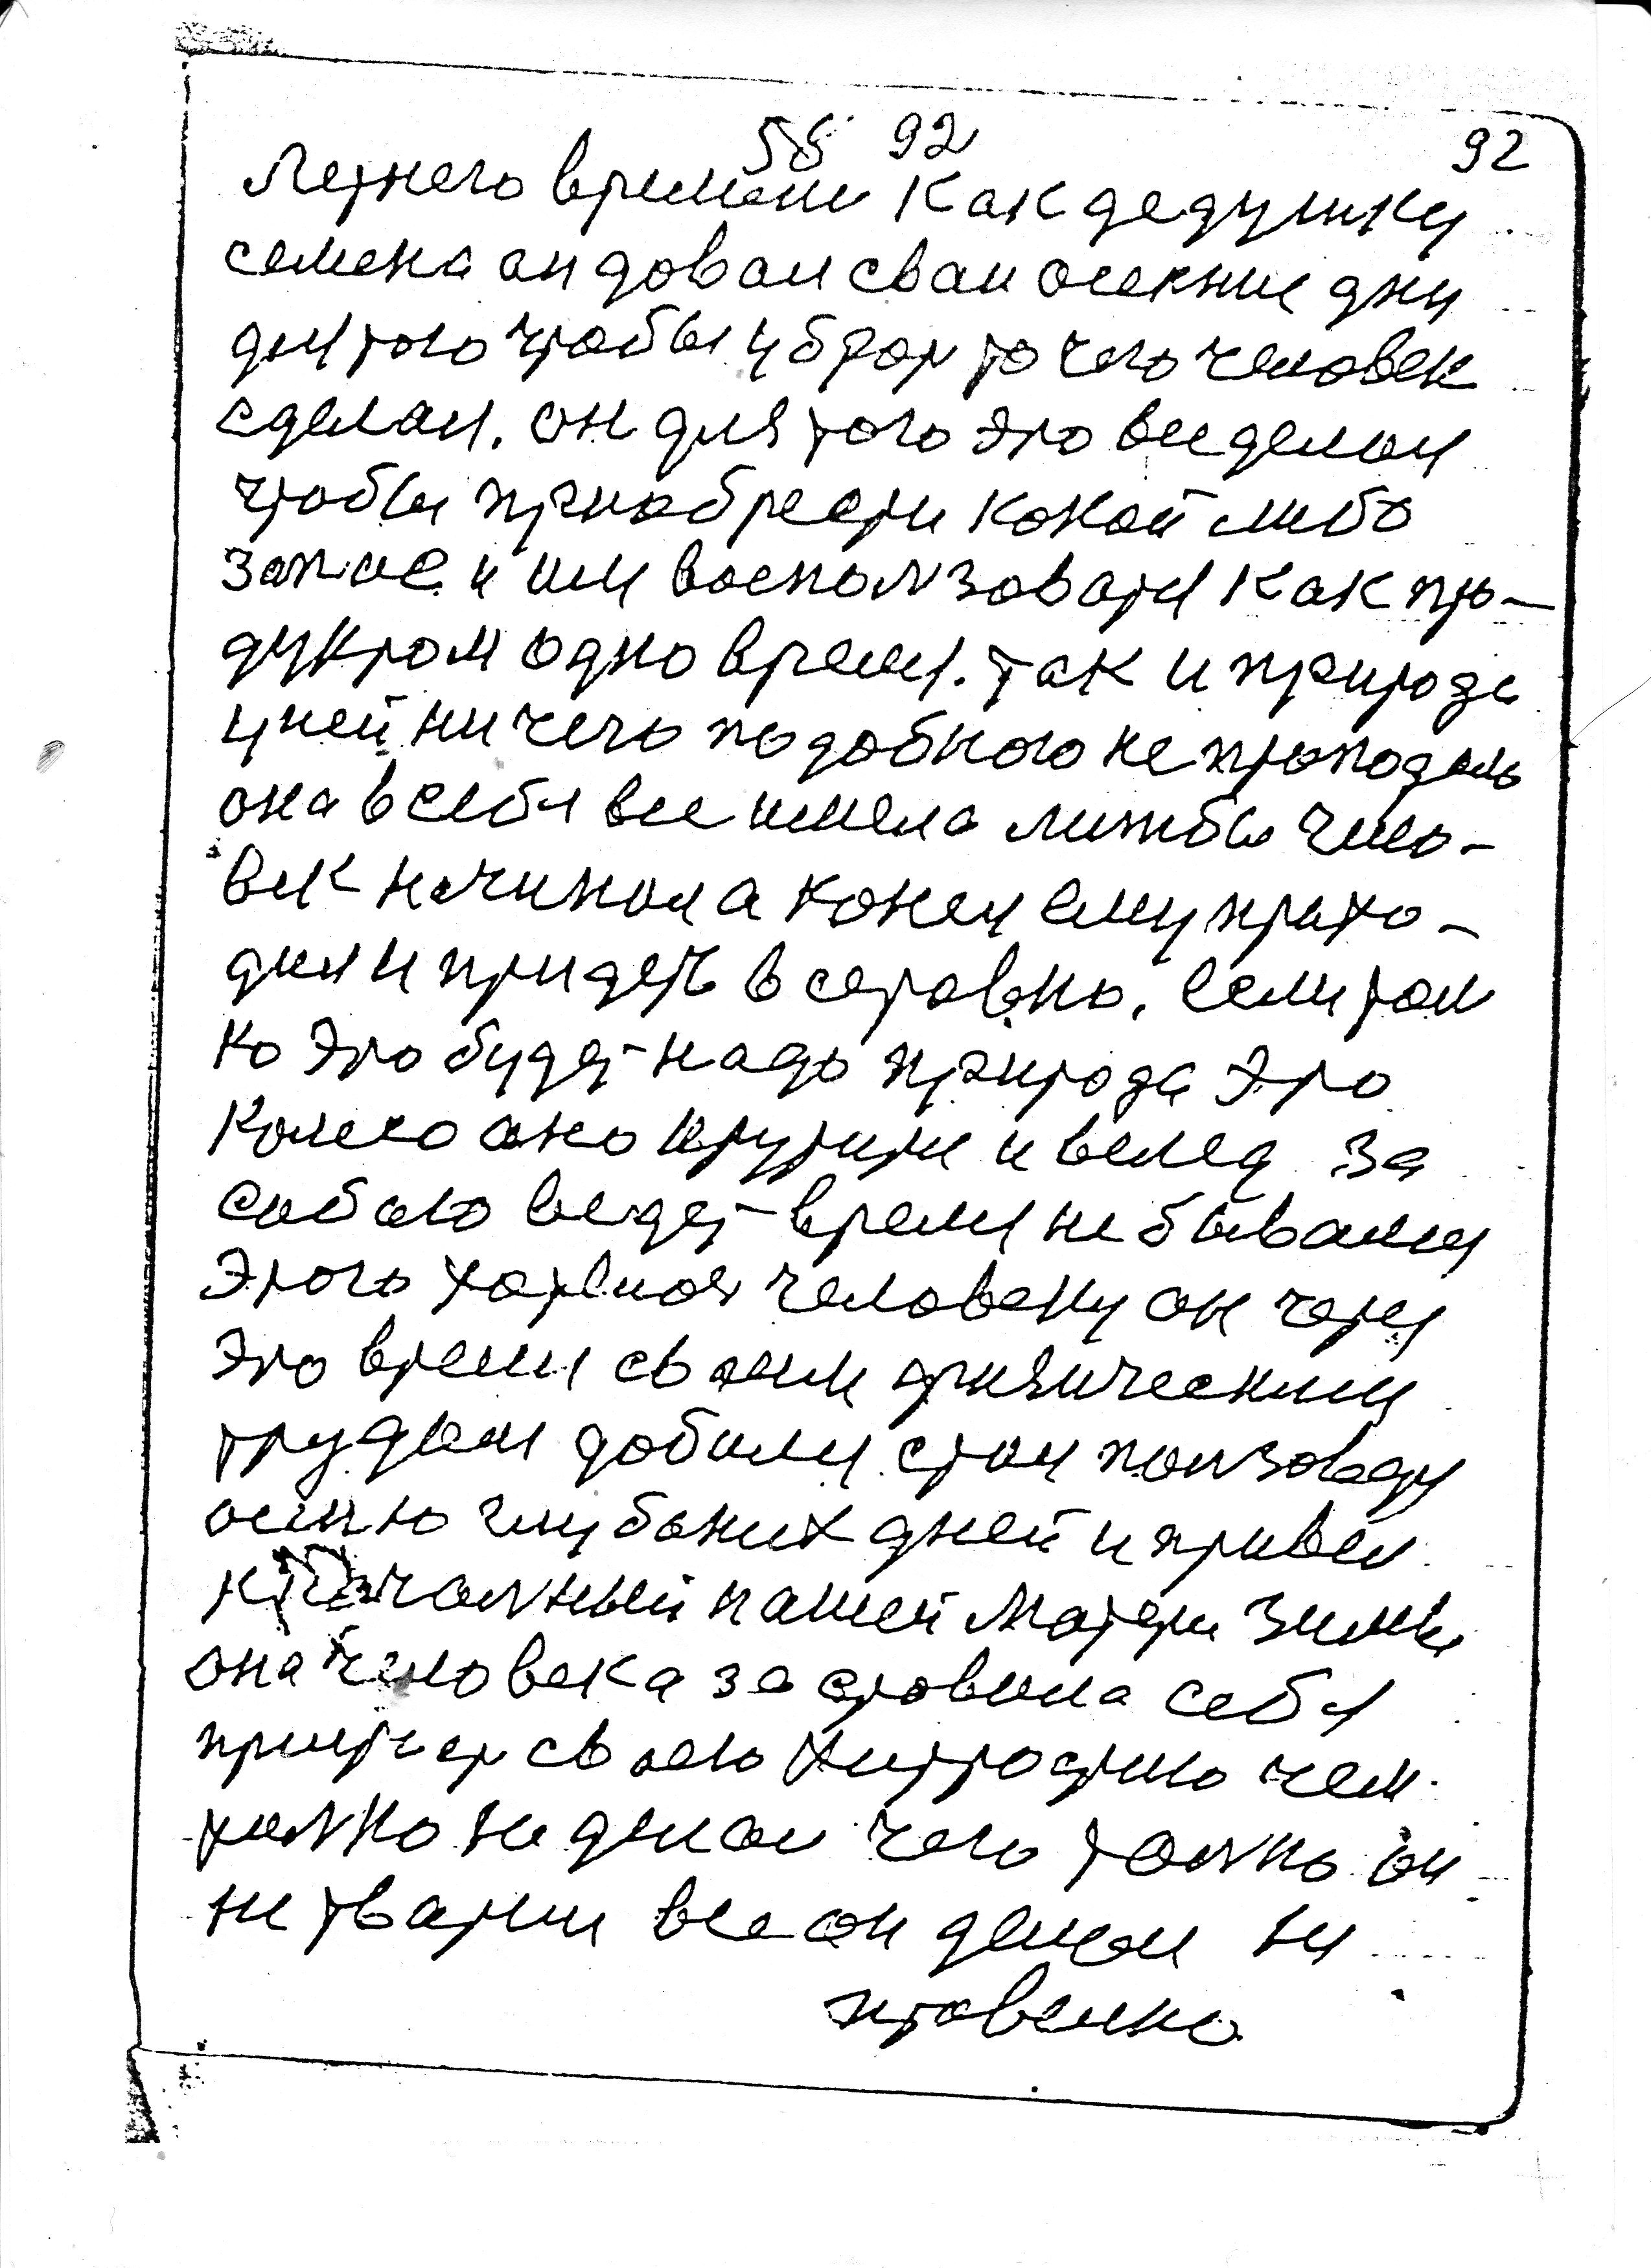 58 92 92
Летнего времени как дедушку
семена он довал сваи осенние дни
для того чтобы убрат то чего человек
сделал. он для того это все делал
чтобы приобрести какой либо
запас и им воспользоватя как про-
дуктом одно время. так и природа
у ней ничего подобного не пропадало
она в себя все имела лижбы чело-
век начинал а конец ему прихо-
дил и придеть всеровно. если тол
ко это будет надо природа это
колесо оно крутити и вслед за
собою ведет время не бывалму
этого человеку он через
это время своим физическим
трудом добилця стал ползоватя
осиню глубоких дней и привел
к нашей Матери Зимы
она человека заставила себя
своею хитростю чем
толко не делал чего толко он
не творил все он делал ни
провелно